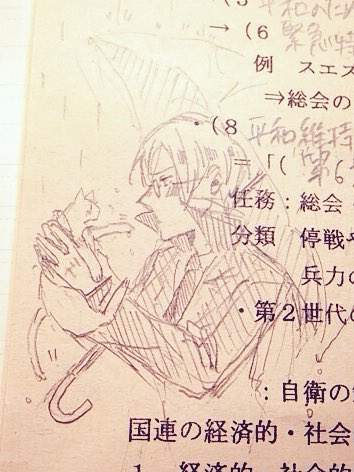 (5 平和のため
→ (6 緊急特
例 スエズ
⇒総会の
・(8 平和維持
=「( 第6
任務：総会・
分類 停戦や
兵力の
・第2世代の
：自衛の
国連の経済的・社会
1 経済的・社会的